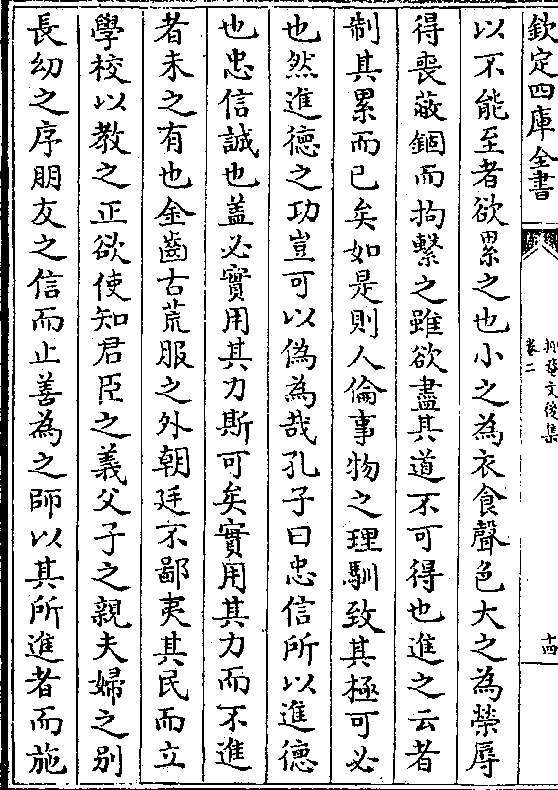 欽定四庫全書
卷二
十四
以不能至者欲累之也小之為衣食聲色大之為榮辱
得喪蔽錮而拘繫之雖欲盡其道不可得也進之云者
制其累而已矣如是則人倫事物之理馴致其極可必
也然進德之功豈可以偽為哉孔子曰忠信所以進德
也忠信誠也蓋必實用其力斯可矣實用其力而不進
者未之有也金齒古荒服之外朝廷不鄙夷其民而立
學校以教之正欲使知君臣之義父子之親夫婦之別
長幼之序朋友之信而止善為之師以其所進者而施